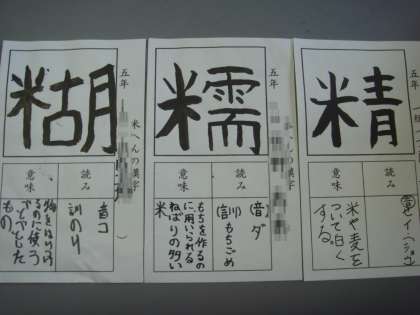 五年
米へんの漢字
糊
読み
音コ
訓のり
意味
物をはりつけ
るのに使う
べとべとした
もの
五年
米へんの漢字
糯
読み
(音)ダ
(訓)もちごめ
意味
もちを作るの
に用いられる
ねばりの多い
米
五年
米へんの漢字
精
読み
意味
米や麦を
ついて白く
する。